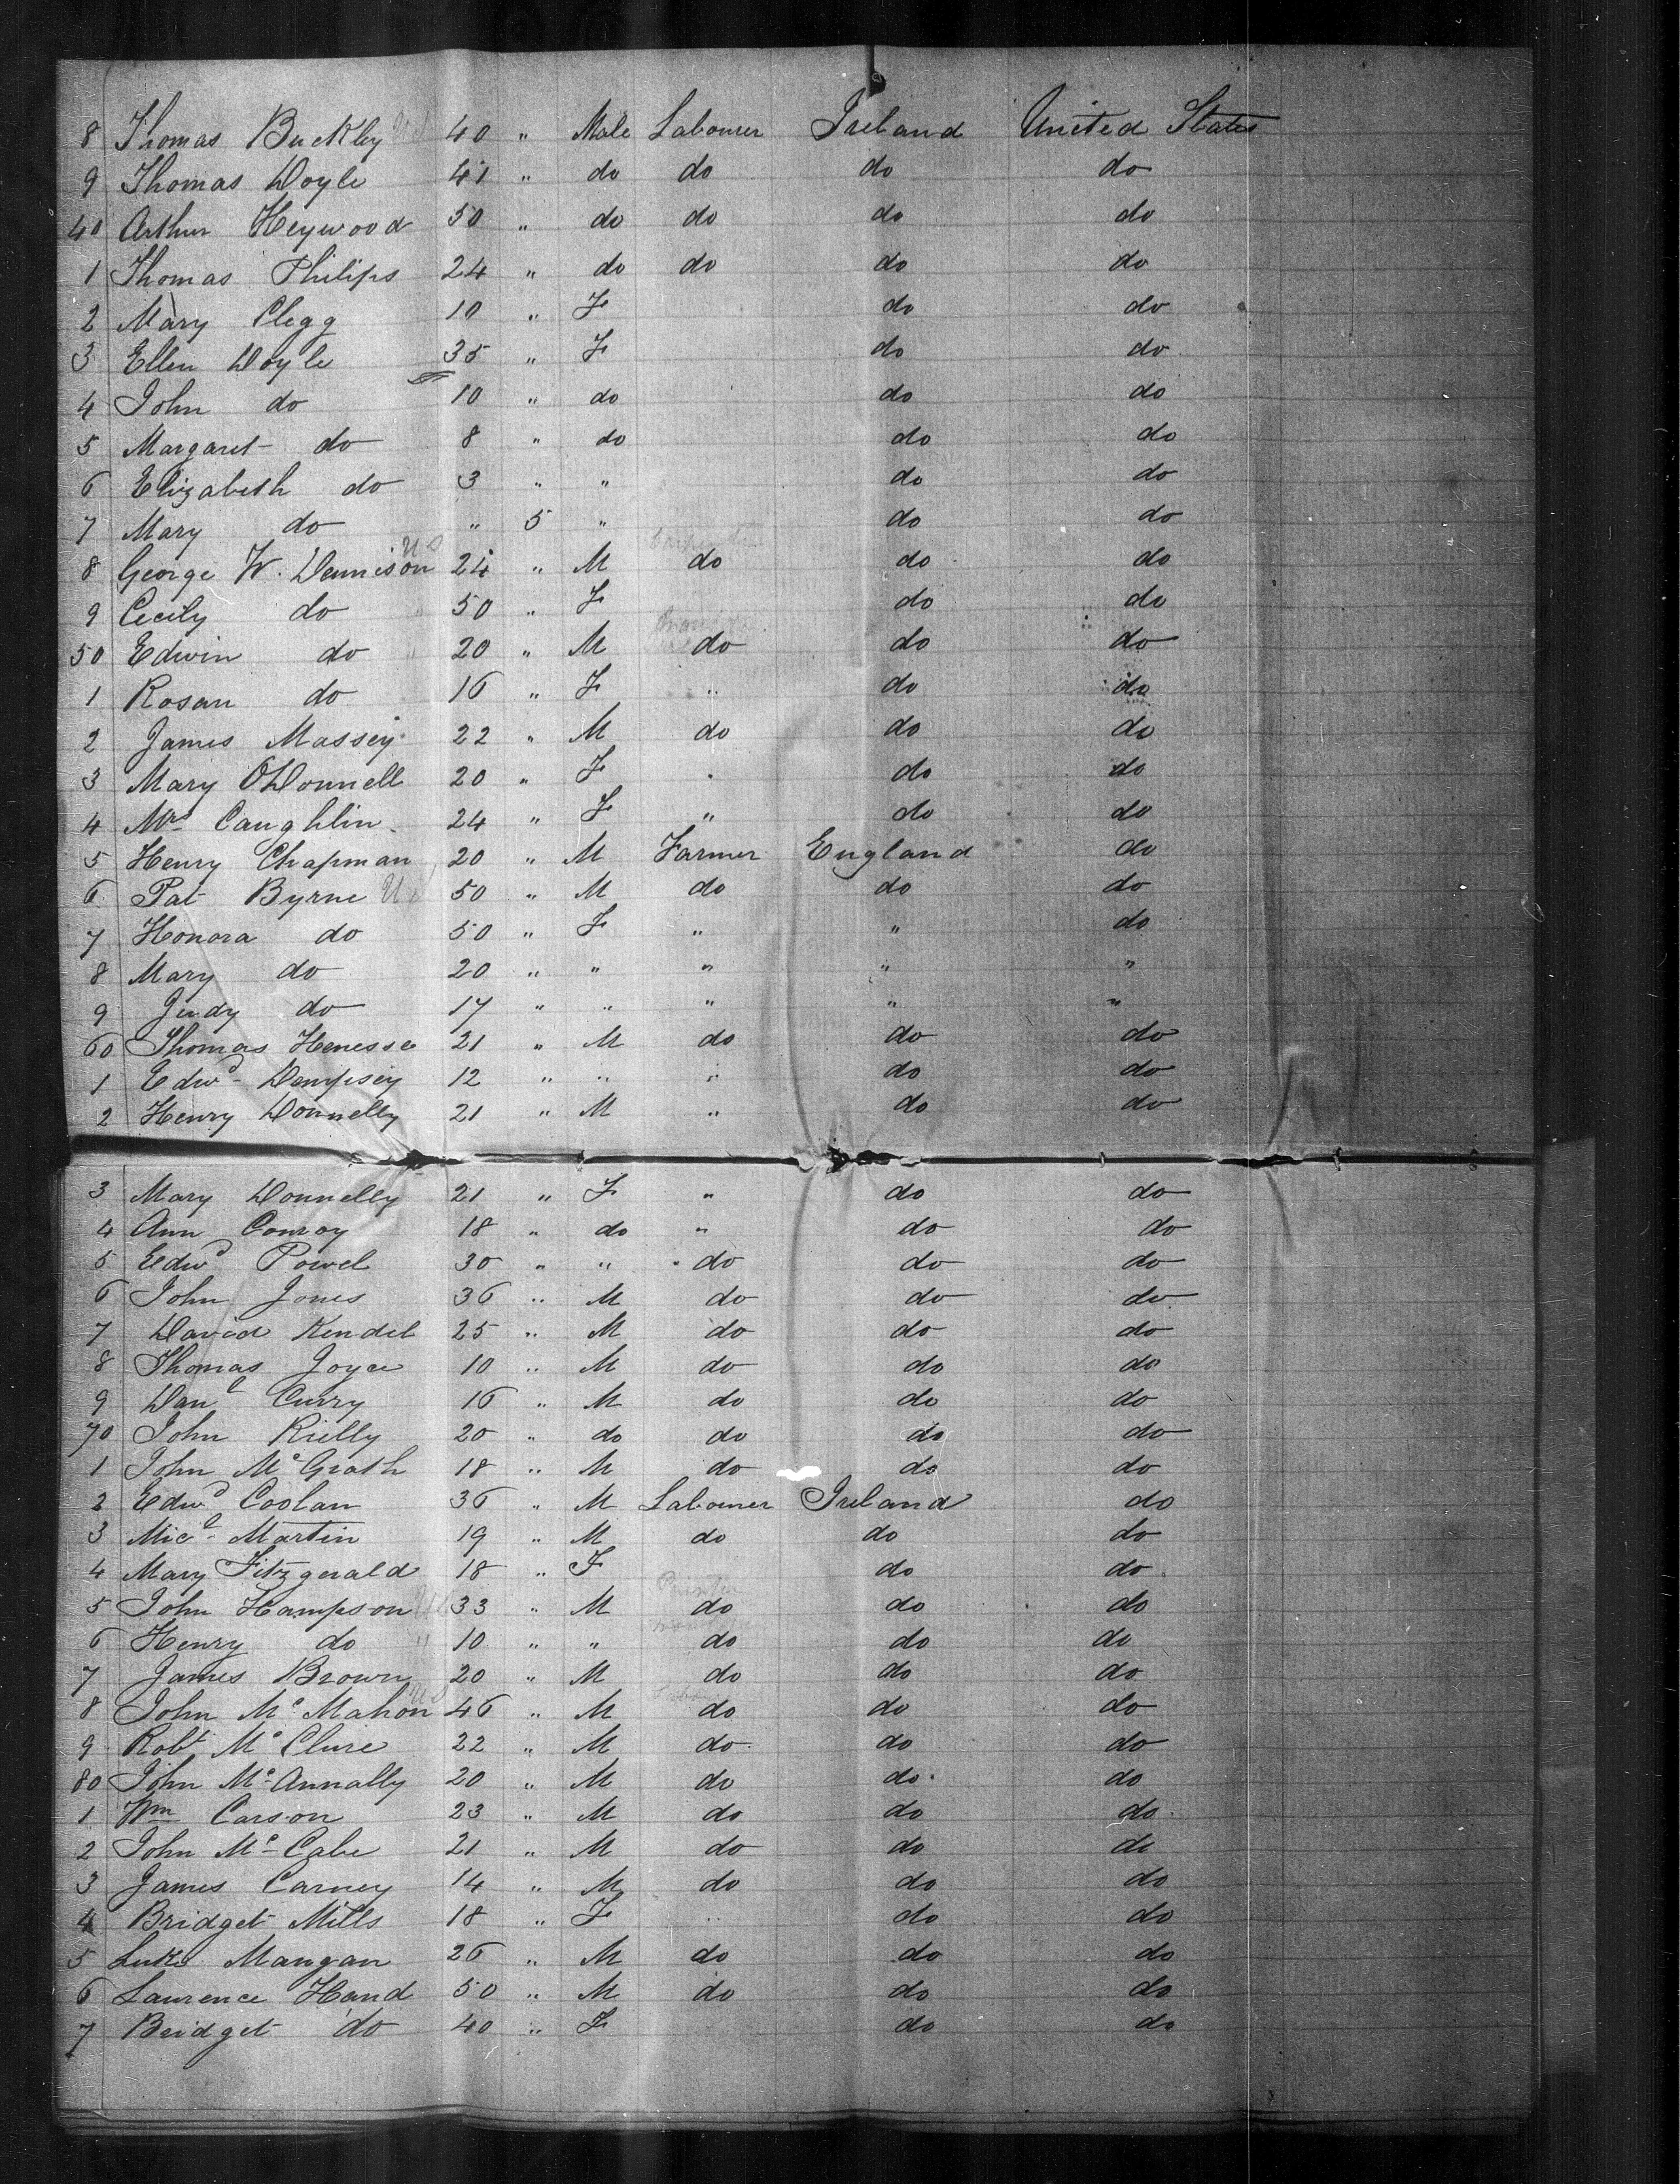 8 Thomas Buckley 40 " Male Labourer Ireland United States
9 Thomas Doyle 41 " do do do do
40 Arthur Heywood 50 " do do do do
1 Thomas Philips 24 " do do do do
2 Mary Clegg 10 " F do do
3 Ellen Doyle 35 " F do do
4 John do 10 " do do do
5 Margaret do 8 " do do do
6 Elizabeth do 3 " " do do
7 Mary do " 5 " do do
8 George W. Dennison US 24 " M do do do
9 Cecily do 50 " F do do
50 Edwin do 20 " M do do do
1 Rosan do 16 " F " do do
2 James Massey 22 " M do do do
3 Mary O'Donnell 20 " F " do do
4 Mrs Caughlin 24 " F " do do
5 Henry Chapman 20 " M Farmer England do
6 Pat Byrne US 50 " M do do do
7 Honora do 50 " F " " do
8 Mary do 20 " " " " "
9 Judy do 17 " " " " "
60 Thomas Henesse 21 " M do do do
1 Edwd Dempsey 12 " " " do do
2 Henry Donnelly 21 " M " do do
3 Mary Donnelly 21 " F " do do
4 Ann Conroy 18 " do " do do
5 Edwd Powel 30 " " do do do
6 John Jones 36 " M do do do
7 David Kendel 25 " M do do do
8 Thomas Joyce 10 " M do do do
9 Danl Curry 16 " M do do do
70 John Rielly 20 " do do do do
1 John McGrath 18 " M do do do
2 Edwd Coolan 36 " M Labourer Ireland do
3 Micl Martin 19 " M do do do
4 Mary Fitzgerald 18 " F do do
5 John Hampson 33 " M do do do
6 Henry do " 10 " " do do do
7 James Brown 20 " M do do do
8 John McMahon US 46 " M do do do
9 Robt McClure 22 " M do do do
80 John McAnnally 20 " M do do do
1 Wm Carson 23 " M do do do
2 John McCabe 21 " M do do do
3 James Carney 14 " M do do do
4 Bridget Mills 18 " F " do do
5 Luke Mangan 26 " M do do do
6 Laurence Hand 50 " M do do do
7 Bridget do 40 " F do do